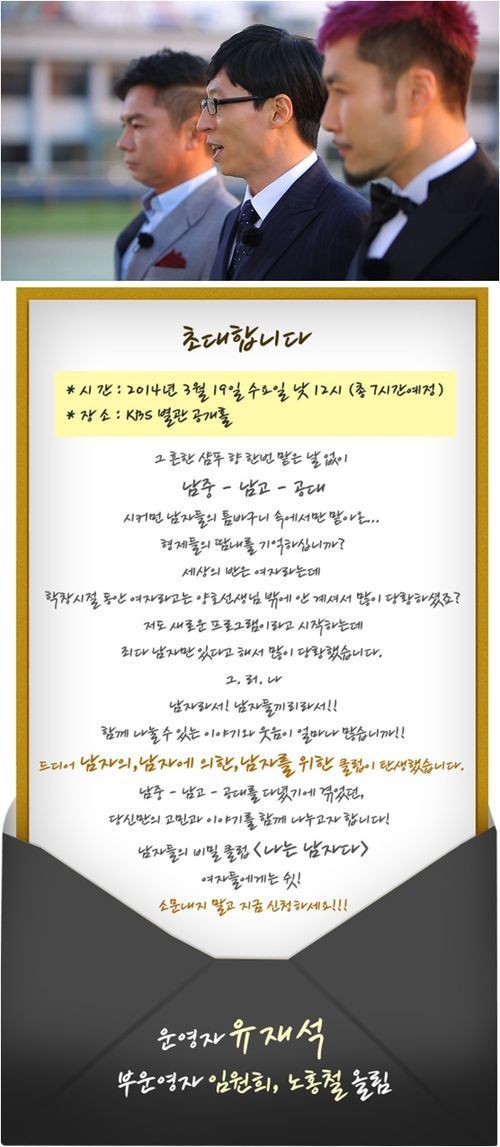 초대합니다
* 시 간 : 2014년 3월 19일 수요일 낮 12시 (총 7시간예정)
* 장 소 : KBS 별관 공개홀
그 흔한 샴푸 향 한번 맡은 날 없이
남중 - 남고 - 공대
시커먼 남자들의 틈바구니 속에서만 맡아온...
형제들의 땀내를 기억하십니까?
세상의 반은 여자라는데
학창시절 동안 여자라고는 양호선생님 밖에 안 계셔서 많이 당황하셨죠?
저도 새로운 프로그램이라고 시작하는데
죄다 남자만 있다고 해서 많이 당황했습니다.
그. 러. 나
남자라서! 남자들끼리라서!!
함께 나눌 수 있는 이야기와 웃음이 얼마나 많습니까!!
드디어 남자의,남자에 의한,남자를 위한 클럽이 탄생했습니다.
남중 - 남고 - 공대를 다녔기에 겪었던,
당신만의 고민과 이야기를 함께 나누고자 합니다!
남자들의 비밀 클럽 <나는 남자다>
여자들에게는 쉿!
소문내지 말고 지금 신청하세요!!!
운영자 유재석
부운영자 임원희, 노홍철 올림